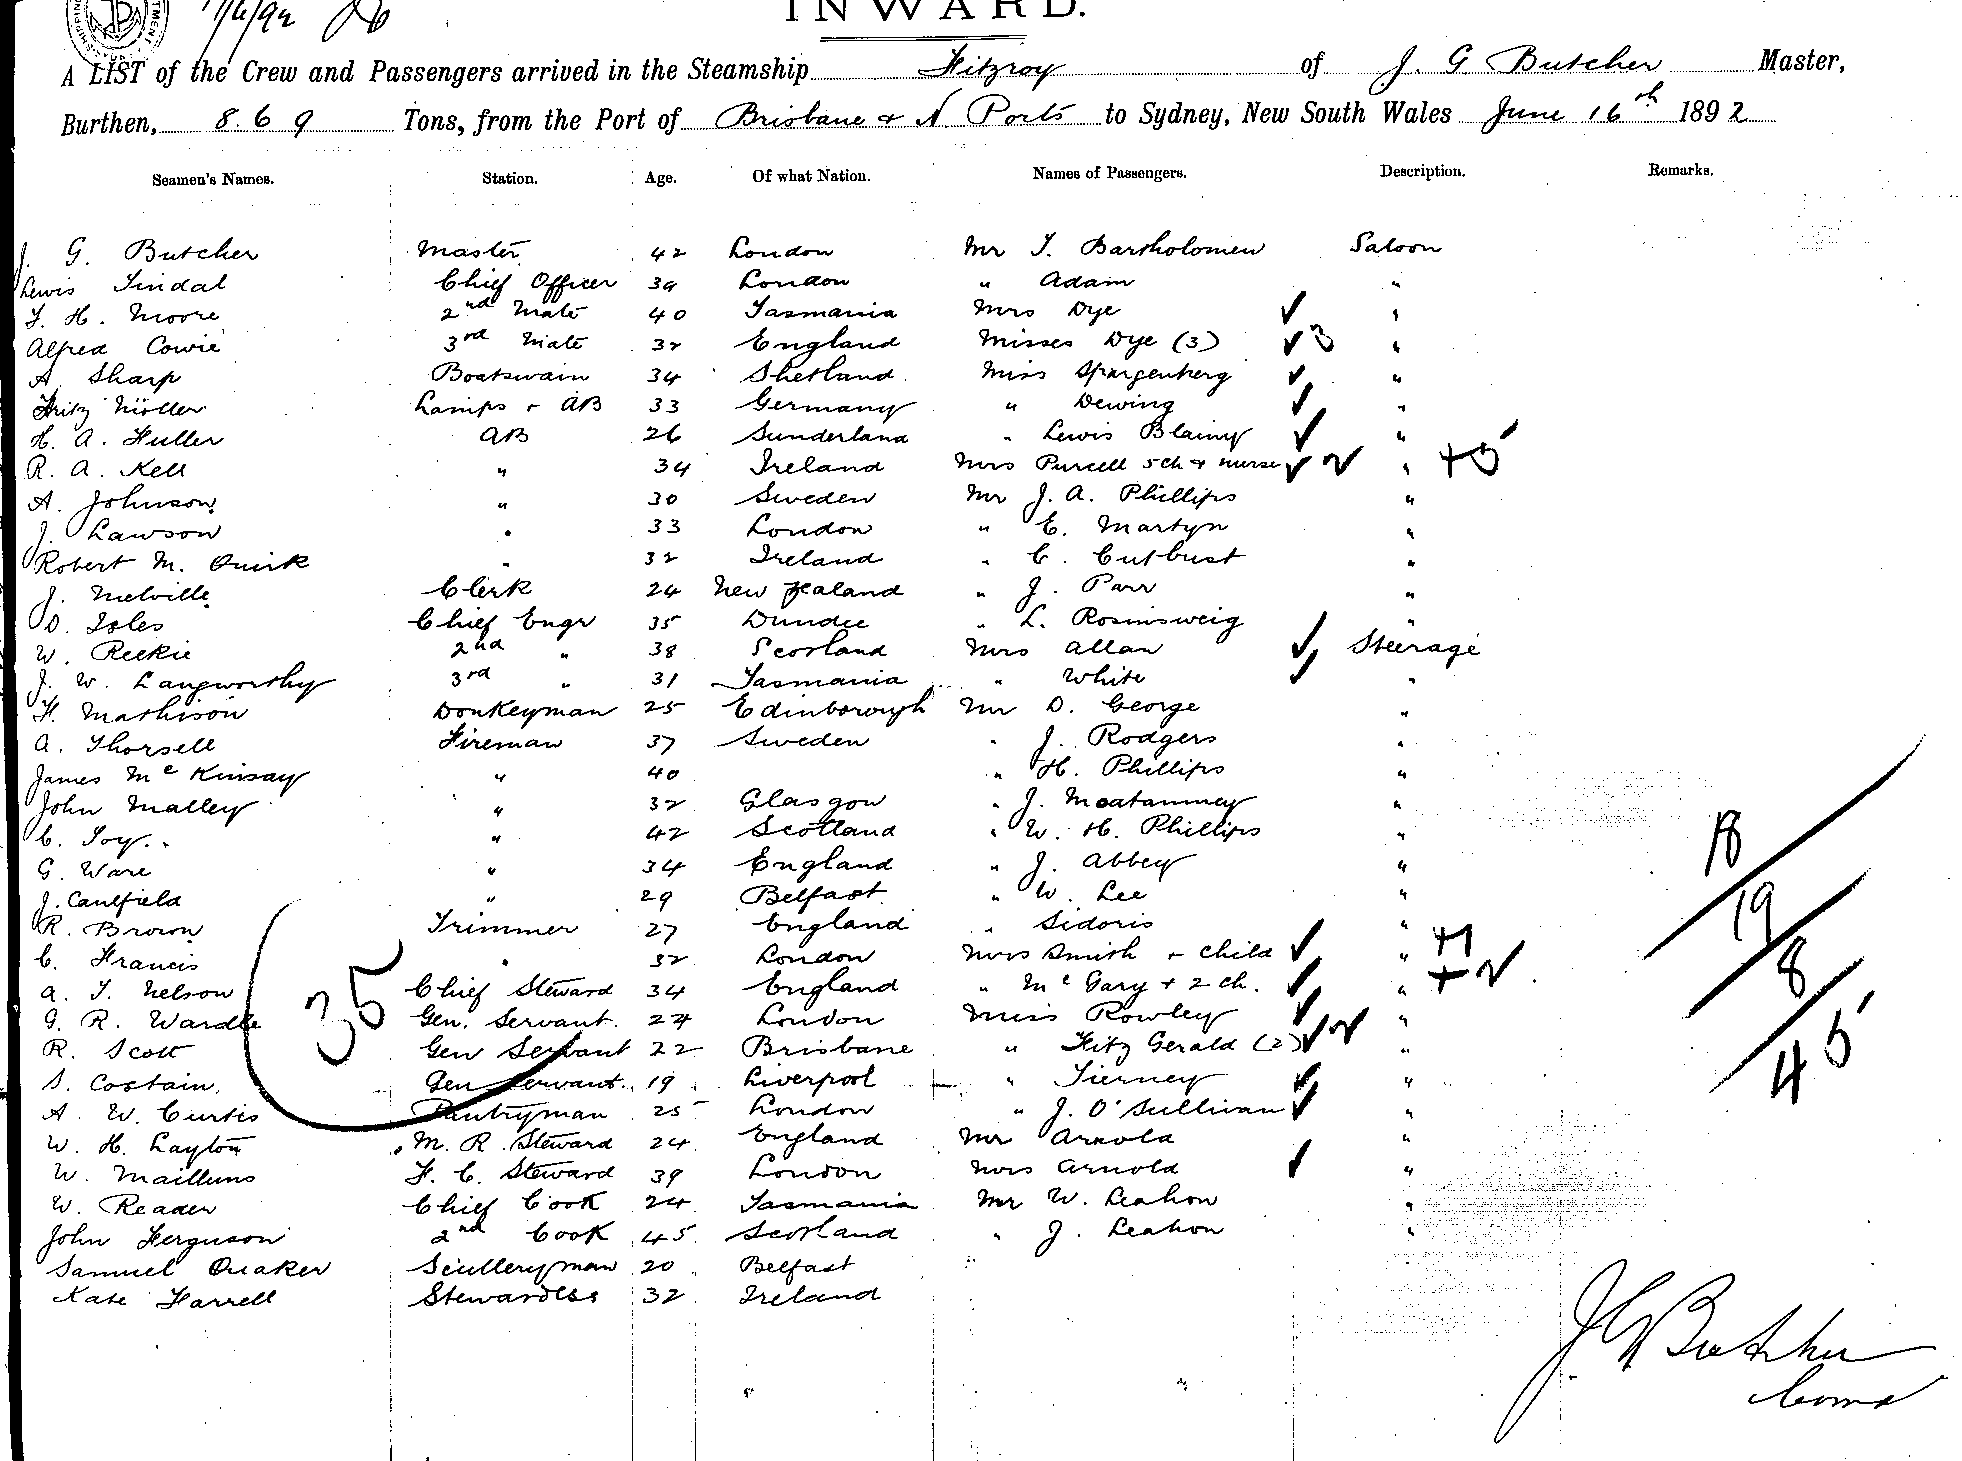 INWARD.
A LIST of the Crew and Passengers arrived in the Steamship Fitzroy of J. G Butcher Master,
Burthen, 869 Tons, from the Port of Brisbane & N Ports to Sydney, New South Wales June 16th 1892
Seamen's Names. Station. Age. Of what Nation. Names of Passengers. Description. Remarks.
J. G. Butcher Master 42 London Mr T. Bartholomew Saloon
Lewis Tindal Chief Officer 39 London " Adam "
T. H. Moore 2nd Mate 40 Tasmania Mrs Dye "
Alfred Cowie 3rd Mate 32 England Misses Dye (3) 3 "
A Sharp Boatswain 34 Shetland Miss Spargenberg "
Fritz Möller Lamps & AB 33 Germany " Dewing "
H. A. Fuller AB 26 Sunderland " Lewis Blainy "
R. A. Kell " 34 Ireland Mrs Purcell 5 ch & nurse 2 " +5
A. Johnson " 30 Sweden Mr J. A. Phillips "
J. Lawson " 33 London " E. Martyn "
Robert M. Quirk " 32 Ireland " C. Cutbust "
J. Melville Clerk 24 New Zealand " J. Parr "
D. Isles Chief Engr 35 Dundee " L. Rosinsweig "
W. Reekie 2nd " 38 Scotland Mrs Allan Steerage
J. W. Langworthy 3rd " 31 Tasmania " White "
F. Mathison Donkeyman 25 Edinborough Mr D. George "
A. Thorsell Fireman 37 Sweden " J. Rodgers "
James McKinsay " 40 " H. Phillips "
John Malley " 32 Glasgow " J. Meatamney "
C. Toy. " 42 Scotland " W. H. Phillips "
G. Ware " 34 England " J. Abbey "
J. Caulfield " 29 Belfast " W. Lee "
R. Brown Trimmer 27 England " Sidoris "
C. Francis " 32 London Mrs Smith & child " +1
A. T. Nelson Chief Steward 34 England " McGary & 2 ch. " +2
G. R. Wardle Gen. Servant. 24 London Miss Rowley "
R. Scott Gen Servant 22 Brisbane " Fitz Gerald (2) 2 "
S. Costain. Gen Servant. 19 Liverpool " Tierney "
A. W. Curtis Pantryman 25 London " J. O'Sullivan "
W. H. Layton M. R. Steward 24 England Mr Arnold "
W. Mailluns F. C. Steward 39 London Mrs Arnold "
W. Reader Chief Cook 24 Tasmania Mr W. Leahon "
John Ferguson 2nd Cook 45 Scotland " J. Leahon "
Samuel Quaker Sculleryman 20 Belfast
Kate Farrell Stewardess 32 Ireland
35
18
19
8
45
J G Butcher